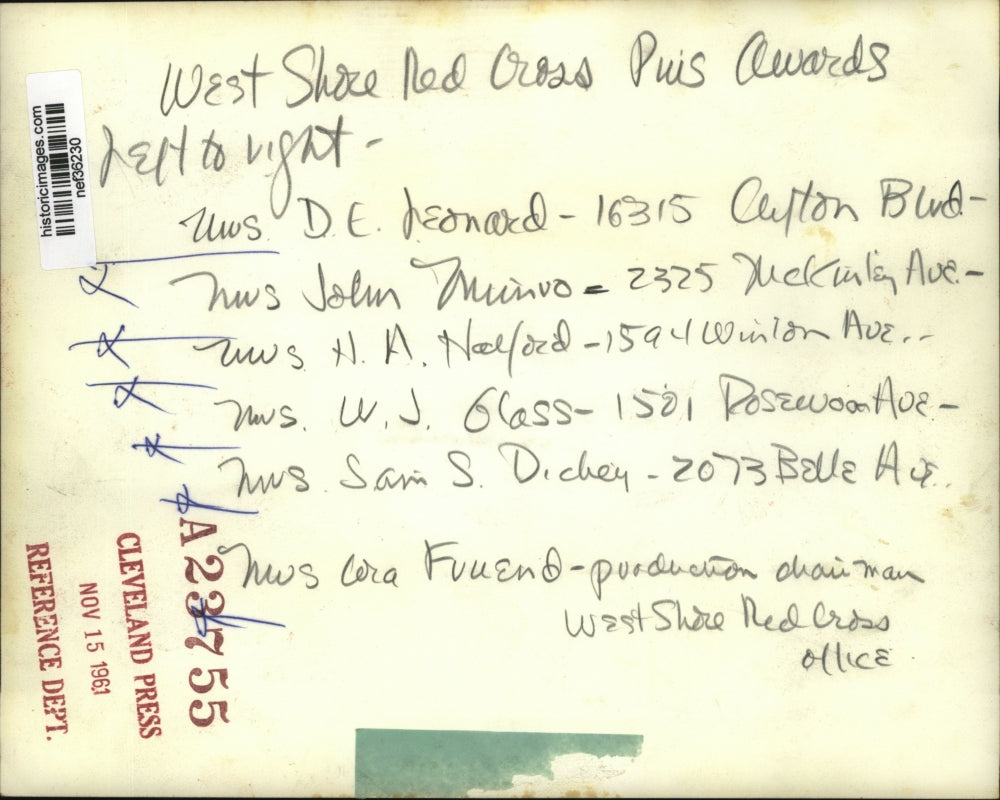 West Shore Red Cross Pins Awards
Left to right -
Mrs. D.E. Leonard - 16315 Clifton Blvd -
Mrs John Munro = 2325 McKinley Ave. -
Mrs H. A. Halford - 1594 Winton Ave. -
Mrs. W. J. Glass - 1501 Rosewood Ave -
Mrs. Sam S. Dickey - 2073 Belle Ave.
Mrs Cora Friend - production chairman
West Shore Red Cross
office
historicimages.com
nef36230
A23755
CLEVELAND PRESS
NOV 15 1961
REFERENCE DEPT.